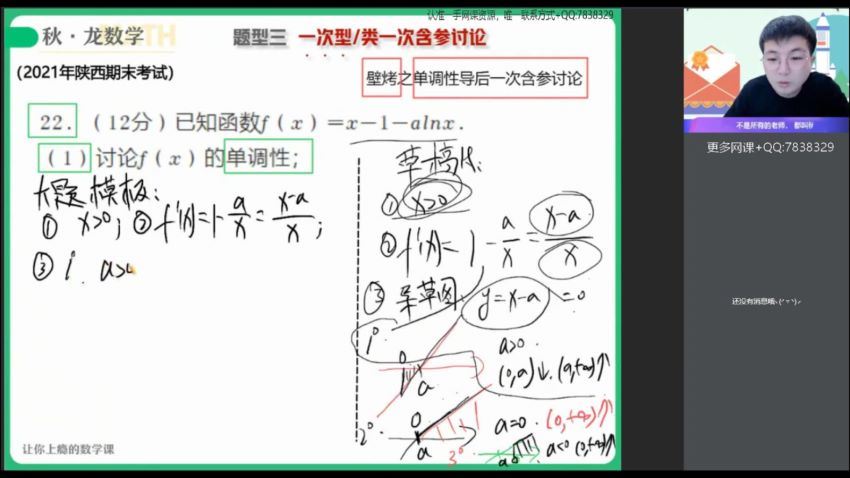 认准一手网课资源，唯一联系方式+QQ:7838329
秋·龙数学
题型三 一次型/类一次含参讨论
（2021年陕西期末考试）
壁烤之单调性导后一次含参讨论
22．（12分）已知函数f（x）=x－1－alnx．
（1）讨论f（x）的单调性；
大题模板：
① x>0；② f'(x)=1-a/x=(x-a)/x；
③ 1°. a>0
草稿纸：
① x>0
② f'(x)=1-a/x=(x-a)/x
③ 呆草图 y=x-a=0
1° 0 a
a>0.
(0,a)↓.(a,+∞)↑
2° 0 a
a=0. (0,+∞)↑
3° a 0 a<0 (0,+∞)↑
让你上瘾的数学课
不是所有的老师，都叫
更多网课+QQ:7838329
还没有消息哦